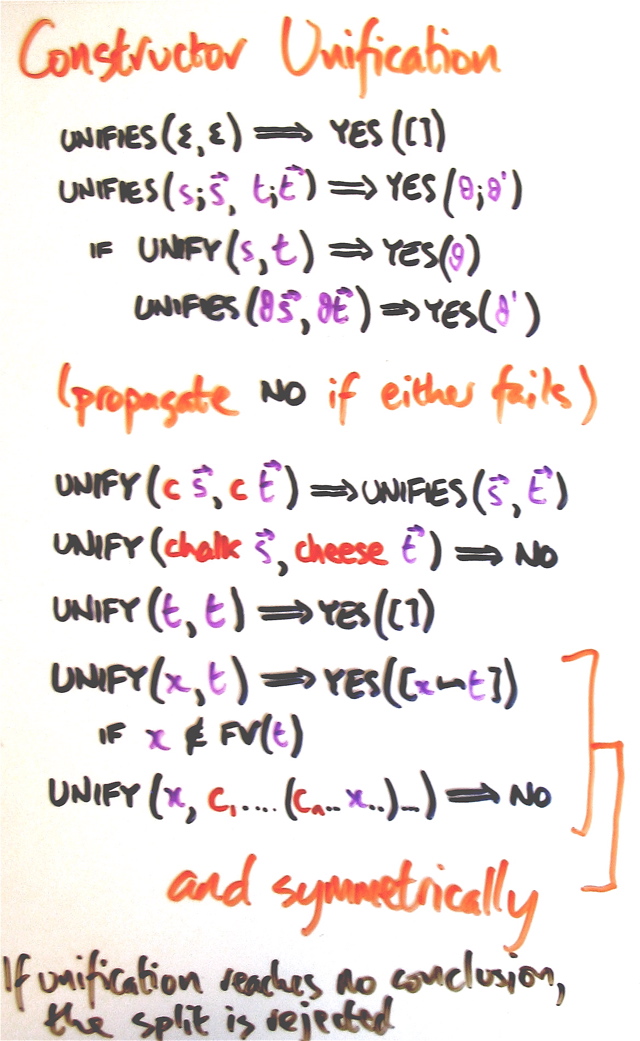 Constructor Unification
UNIFIES(ε, ε) ⟹ YES([])
UNIFIES(s;s⃗, t;t⃗) ⟹ YES(θ;θ')
IF UNIFY(s, t) ⟹ YES(θ)
UNIFIES(θs⃗, θt⃗) ⟹ YES(θ')
(propagate NO if either fails)
UNIFY(c s⃗, c t⃗) ⟹ UNIFIES(s⃗, t⃗)
UNIFY(chalk s⃗, cheese t⃗) ⟹ NO
UNIFY(t, t) ⟹ YES([])
UNIFY(x, t) ⟹ YES([x↦t])
IF x ∉ FV(t)
UNIFY(x, c₁....(cₙ..x..)...) ⟹ NO
and symmetrically
If unification reaches no conclusion,
the split is rejected